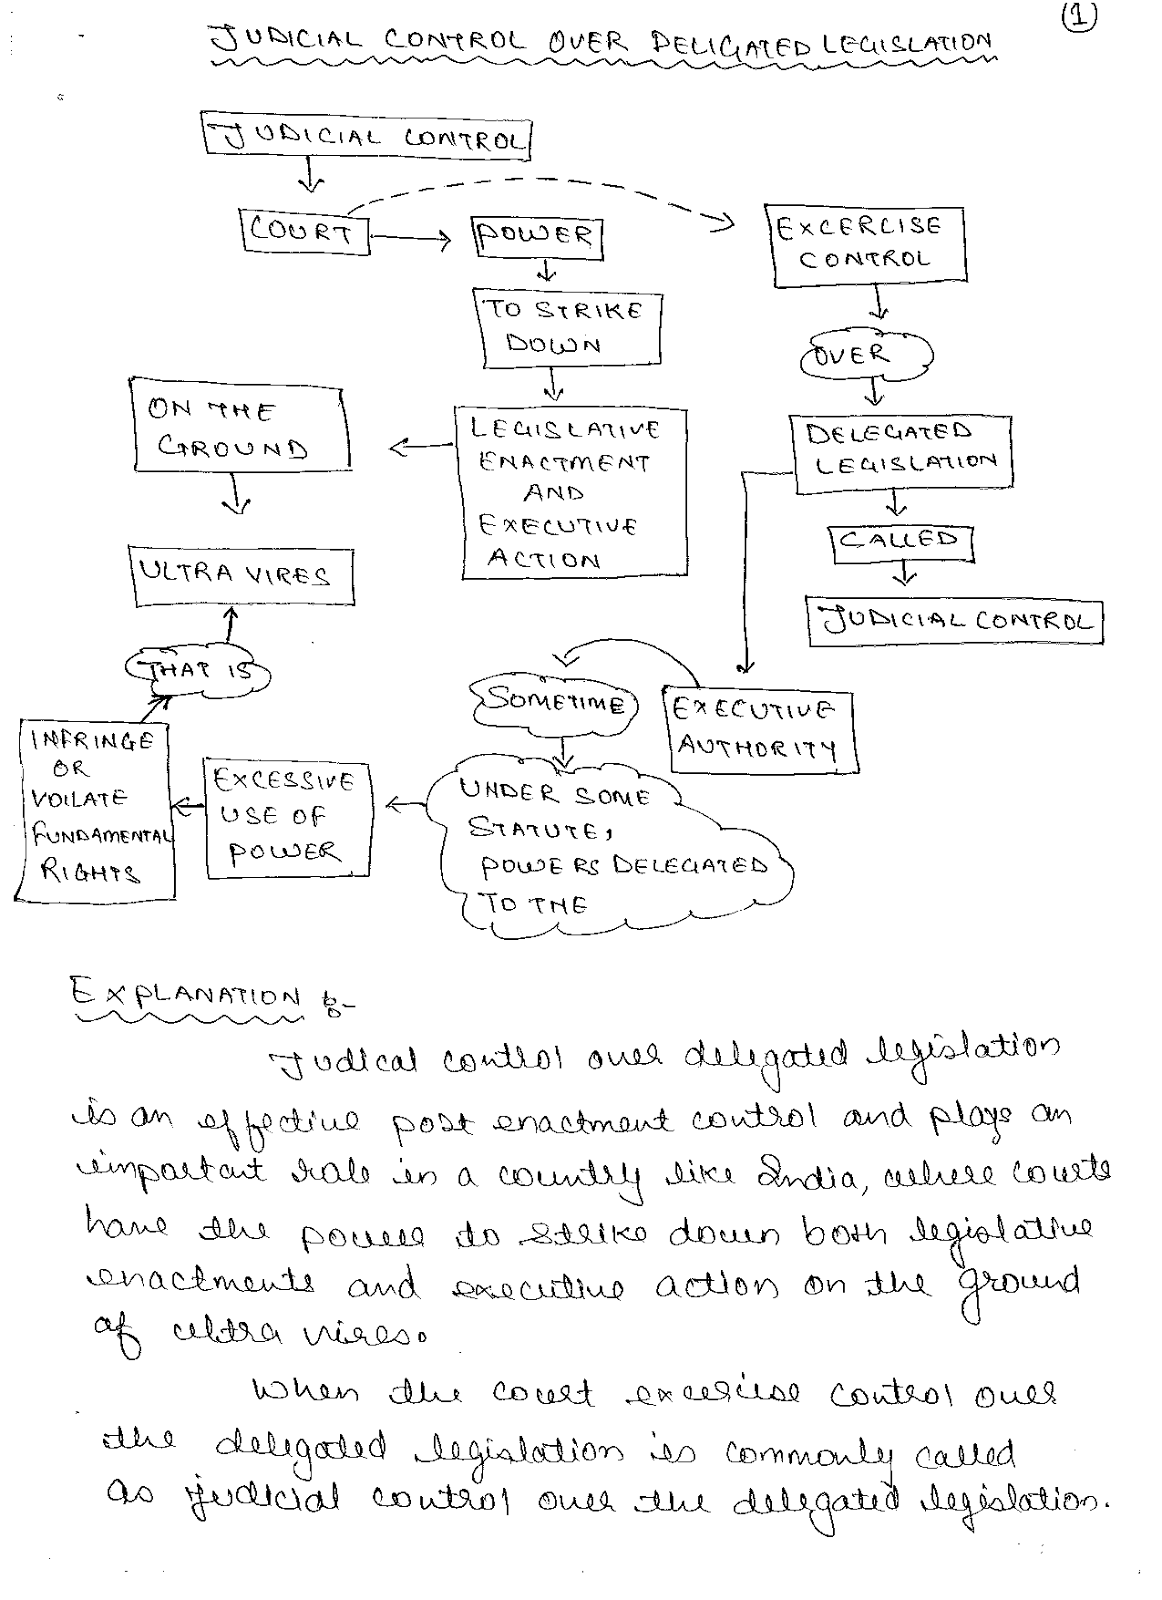 (1)
JUDICIAL CONTROL OVER DELIGATED LEGISLATION
JUDICIAL CONTROL
COURT
POWER
EXCERCISE
CONTROL
TO STRIKE
DOWN
OVER
ON THE
GROUND
LEGISLATIVE
ENACTMENT
AND
EXECUTIVE
ACTION
DELEGATED
LEGISLATION
CALLED
ULTRA VIRES
JUDICIAL CONTROL
THAT IS
SOMETIME
EXECUTIVE
AUTHORITY
INFRINGE
OR
VOILATE
FUNDAMENTAL
RIGHTS
EXCESSIVE
USE OF
POWER
UNDER SOME
STATUTE,
POWERS DELEGATED
TO THE
EXPLANATION :-
Judical control over delegated legislation
is an effective post enactment control and plays an
important role in a country like India, where courts
have the power to strike down both legislative
enactments and executive action on the ground
of ultra vires.
When the court excercise control over
the delegated legislation is commonly called
as judicial control over the delegated legislation.